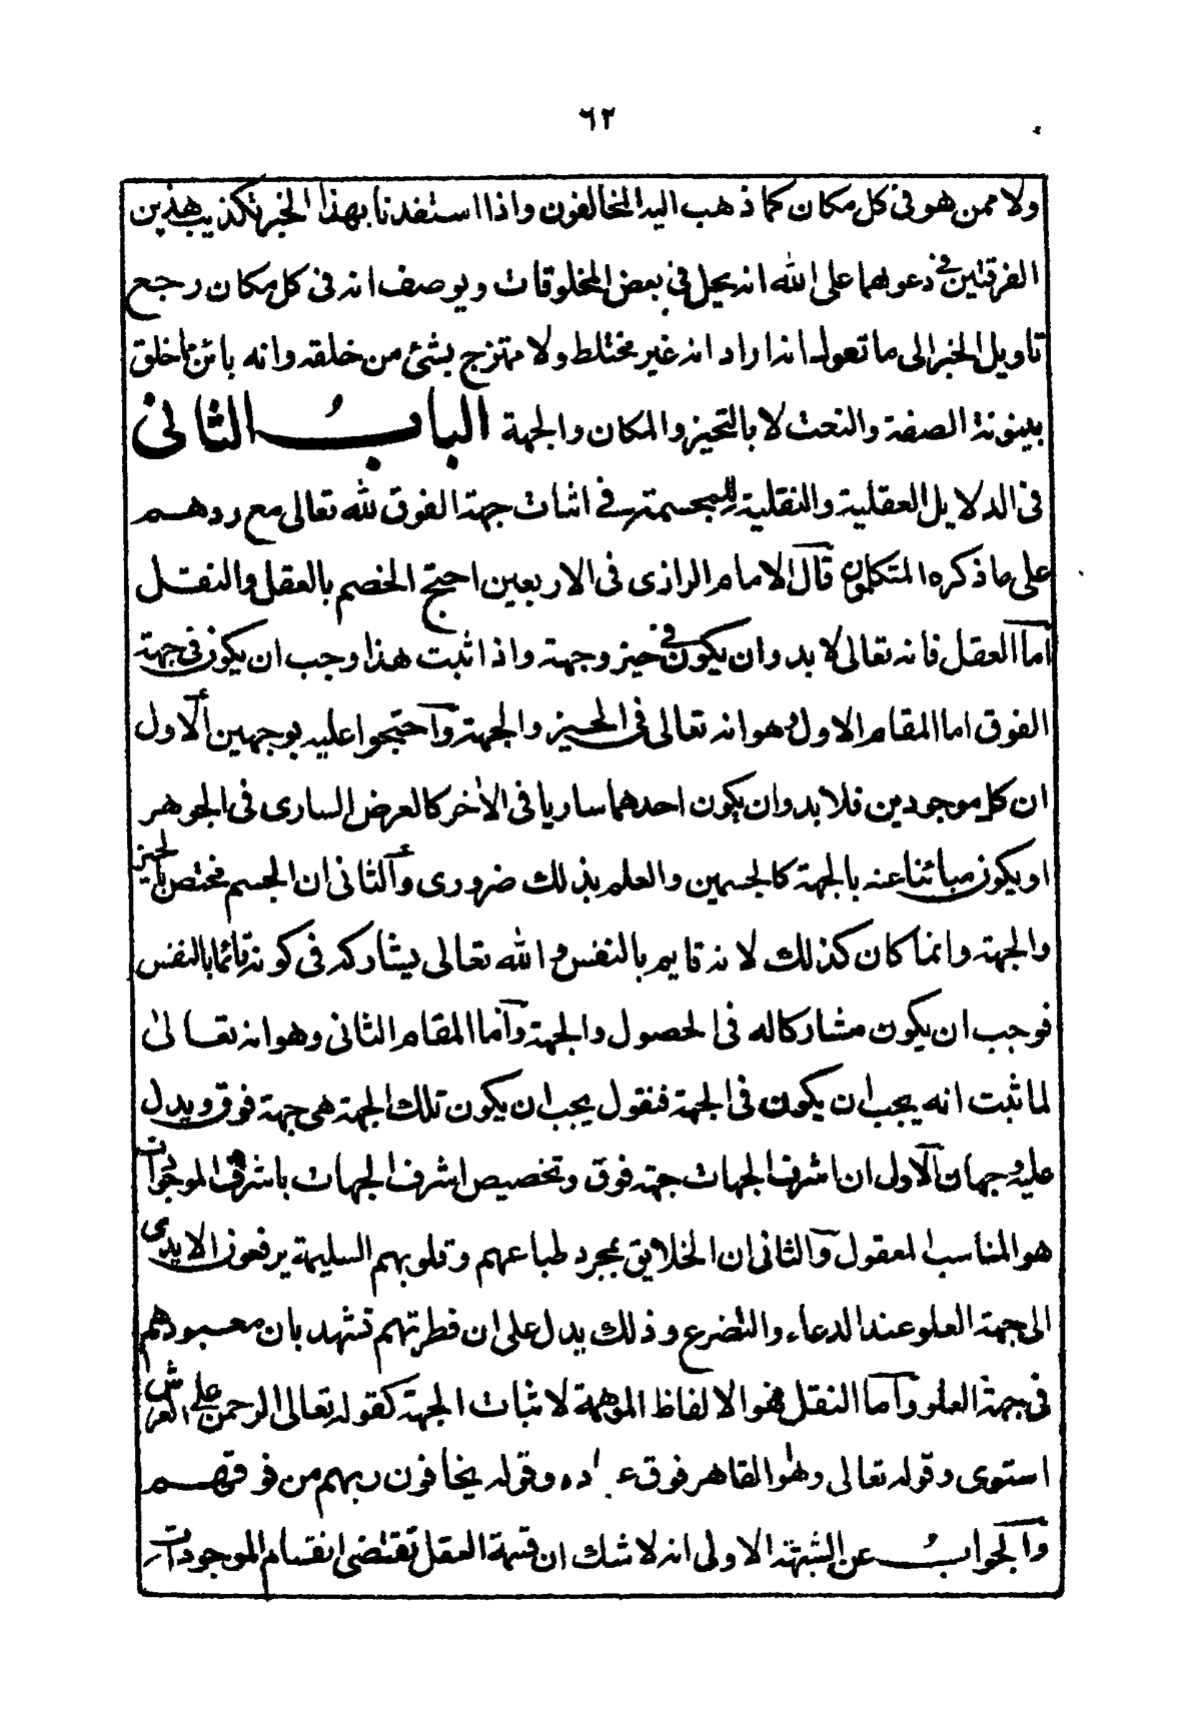 ٦٢
ولا ممن هو فى كل مكان كما ذهب اليه المخالفون واذا استفدنا بهذا الخبر تكذيب هذين
الفرقتين فى دعوهما على الله انه يحل فى بعض المخلوقات ويوصف انه فى كل مكان رجع
تاويل الخبر الى ما تعوله انه اراد انه غير مختلط ولا متزج بشئ من خلقه وانه بائن مما خلق
بينونة الصفة والنعت لا بالتحيز والمكان والجهة البابُ الثانى
فى الدلايل العقلية والنقلية للمجسمة فى اثبات جهة الفوق لله تعالى مع ردهم
على ما ذكره المتكلمون قال الامام الرازى فى الاربعين احتج الخصم بالعقل والنقل
اما العقل فانه تعالى لا بد وان يكون فى حيز وجهة واذا ثبت هذا وجب ان يكون فى جهة
الفوق اما المقام الاول وهو انه تعالى فى الحيز والجهة واحتجوا عليه بوجهين الاول
ان كل موجودين فلا بد وان يكون احدهما ساريا فى الاخر كالعرض السارى فى الجوهر
او يكون مبائنا عنه بالجهة كالجسمين والعلم بذلك ضرورى والثانى ان الجسم مختص بالحيز
والجهة وانما كان كذلك لانه قايم بالنفس والله تعالى يشاركه فى كونه قائما بالنفس
فوجب ان يكون مشاركا له فى الحصول والجهة واما المقام الثانى وهو انه تعالى
لما ثبت انه يجب ان يكون فى الجهة فنقول يجب ان يكون تلك الجهة هى جهة فوق ويدل
عليه وجهان الاول ان اشرف الجهات جهة فوق وتخصيص اشرف الجهات باشرف الموجودات
هو المناسب المعقول والثانى ان الخلايق بمجرد طباعهم وقلوبهم السليمة يرفعون الايدى
الى جهة العلو عند الدعاء والتضرع وذلك يدل على ان فطرتهم تشهد بان معبودهم
فى جهة العلو واما النقل فهو الالفاظ الموهمة لاثبات الجهة كقوله تعالى الرحمن على العرش
استوى وقوله تعالى وهو القاهر فوق عباده وقوله يخافون ربهم من فوقهم
والجوابُ عن الشبهة الاولى انه لا شك ان قسمة العقل تقتضى انقسام الموجودات